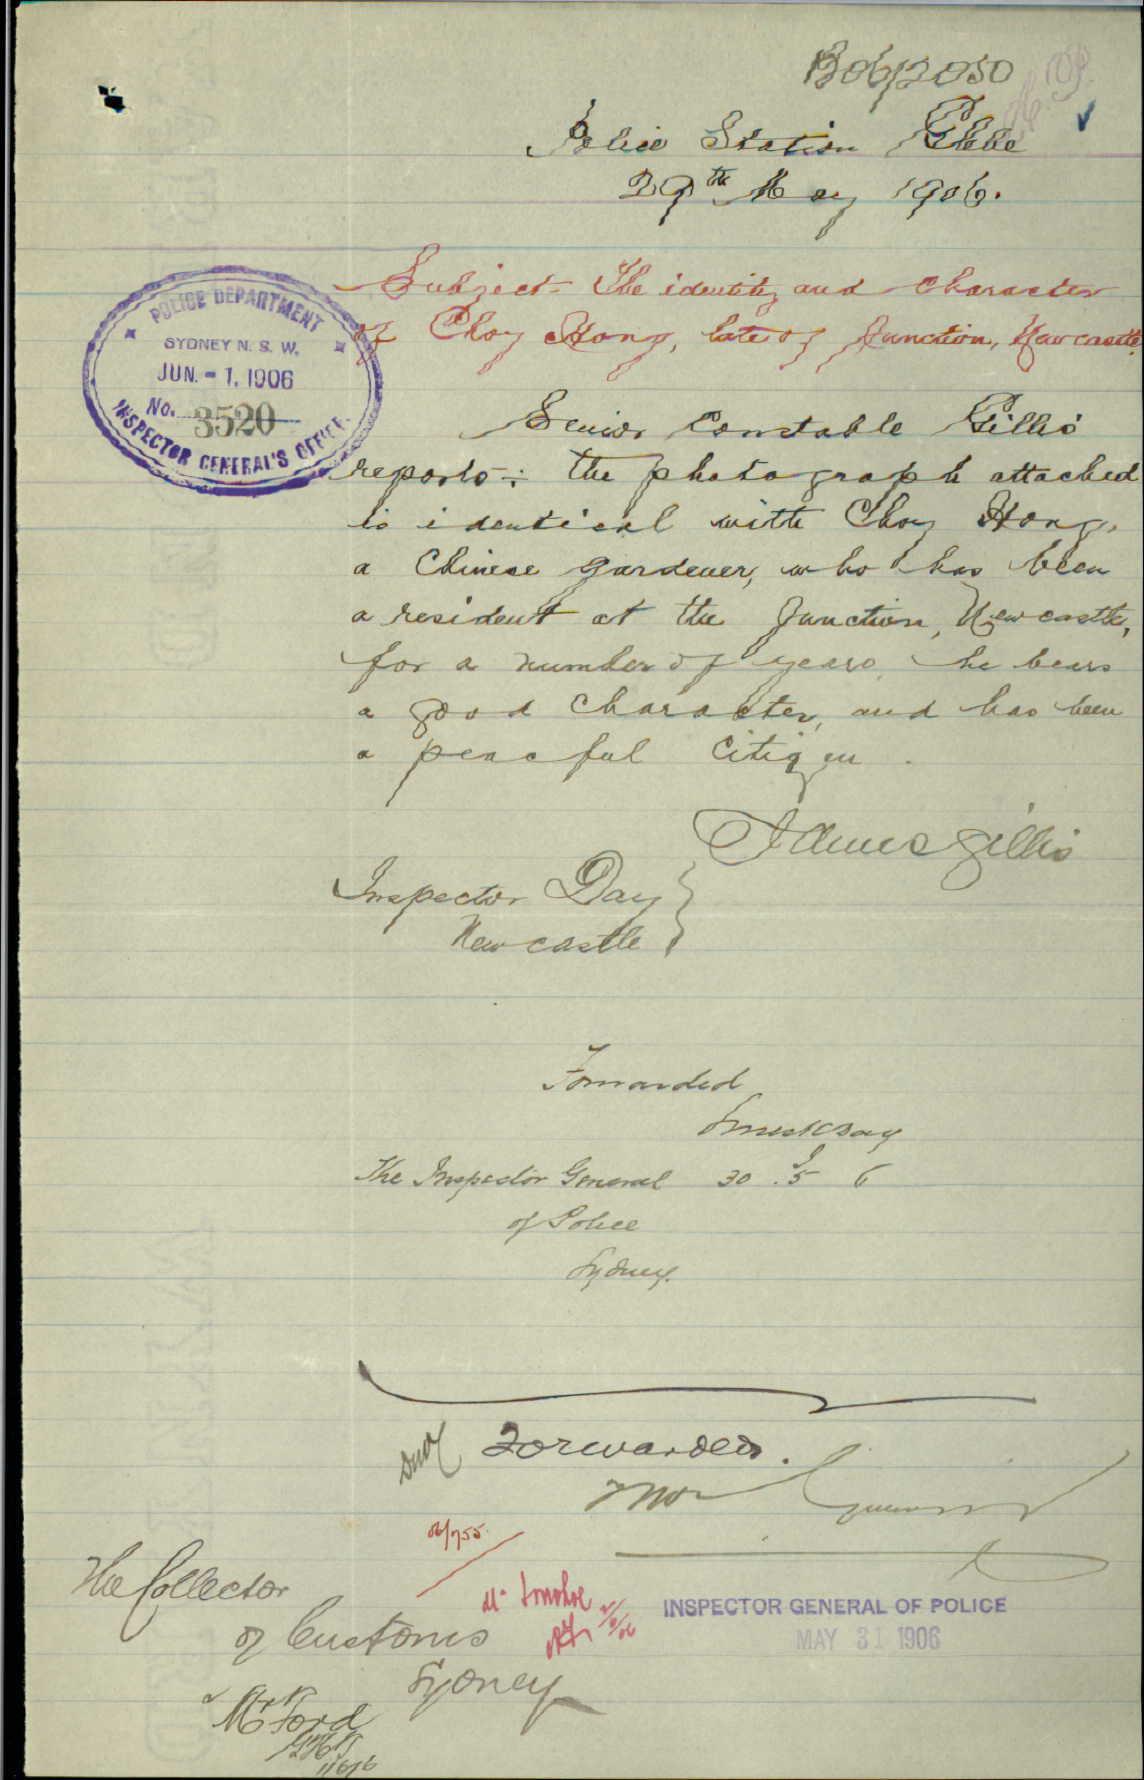 B06/2050
Police Station Glebe
29th May 1906.
Subject - The identity and character
of Choy Hong, late of Junction, Newcastle.
POLICE DEPARTMENT
SYDNEY N. S. W.
JUN. - 1. 1906
No. 3520
INSPECTOR GENERAL'S OFFICE.
Senior Constable Gillis
reports: the photograph attached
is identical with Choy Hong,
a Chinese gardener, who has been
a resident at the Junction, Newcastle,
for a number of years, he bears
a good character, and has been
a peaceful citizen.
James Gillis
Inspector Day
Newcastle
Forwarded
Day
The Inspector General 30.5 6
of Police
Sydney.
Forwarded.
06/755.
The Collector
of Customs
Sydney
Mr
INSPECTOR GENERAL OF POLICE
MAY 31 1906
Mr Ford
1/6/6